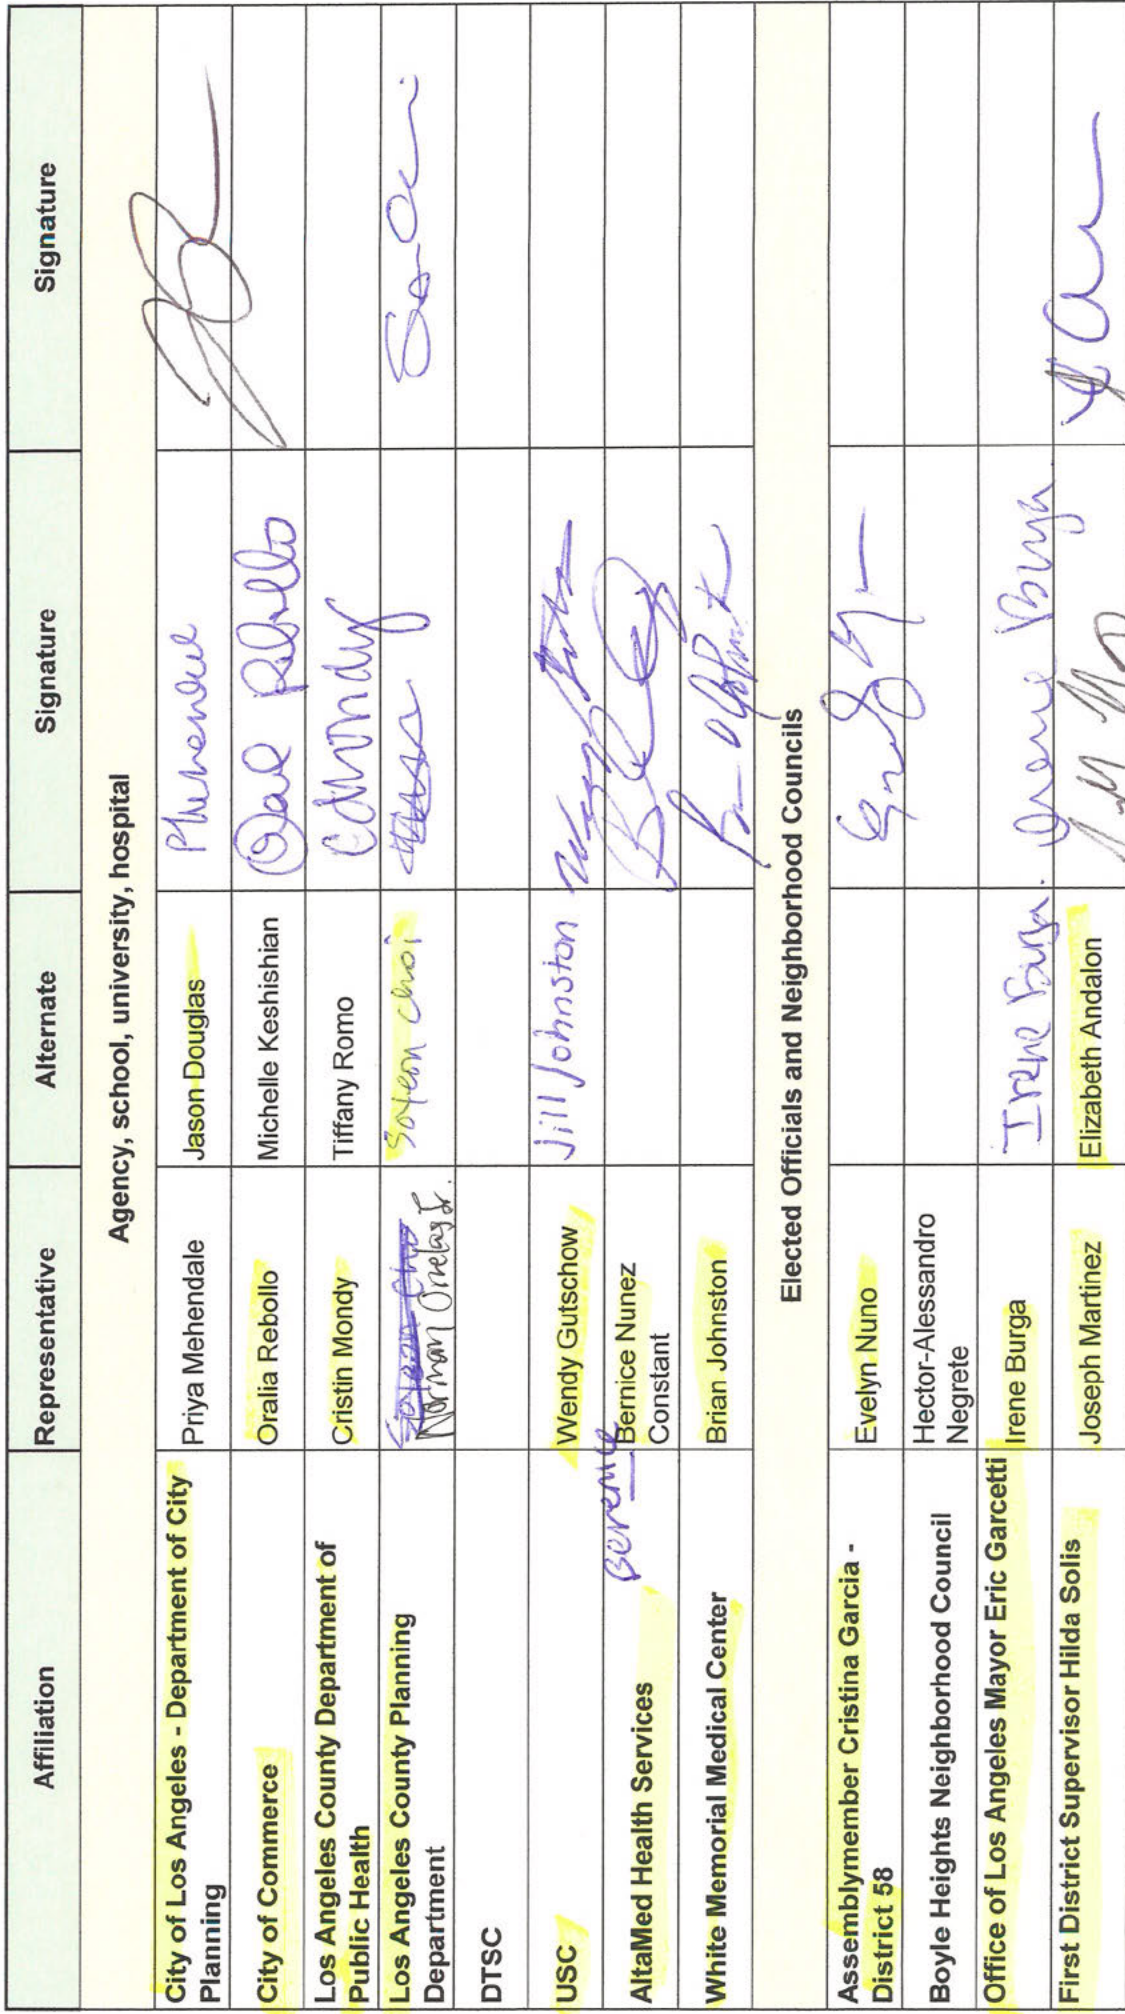 Affiliation Representative Alternate Signature Signature
Agency, school, university, hospital
City of Los Angeles - Department of City Priya Mehendale Jason Douglas PMehendale
Planning
City of Commerce Oralia Rebollo Michelle Keshishian Rebollo
Los Angeles County Department of Cristin Mondy Tiffany Romo CMondy
Public Health
Los Angeles County Planning Norman Ornelas Jr. Soyeon Choi
Department
DTSC
USC Wendy Gutschow Jill Johnston
Berenice
AltaMed Health Services Bernice Nunez
Constant
White Memorial Medical Center Brian Johnston
Elected Officials and Neighborhood Councils
Assemblymember Cristina Garcia - Evelyn Nuno
District 58
Boyle Heights Neighborhood Council Hector-Alessandro
Negrete
Office of Los Angeles Mayor Eric Garcetti Irene Burga Irene Burga. Irene Burga
First District Supervisor Hilda Solis Joseph Martinez Elizabeth Andalon